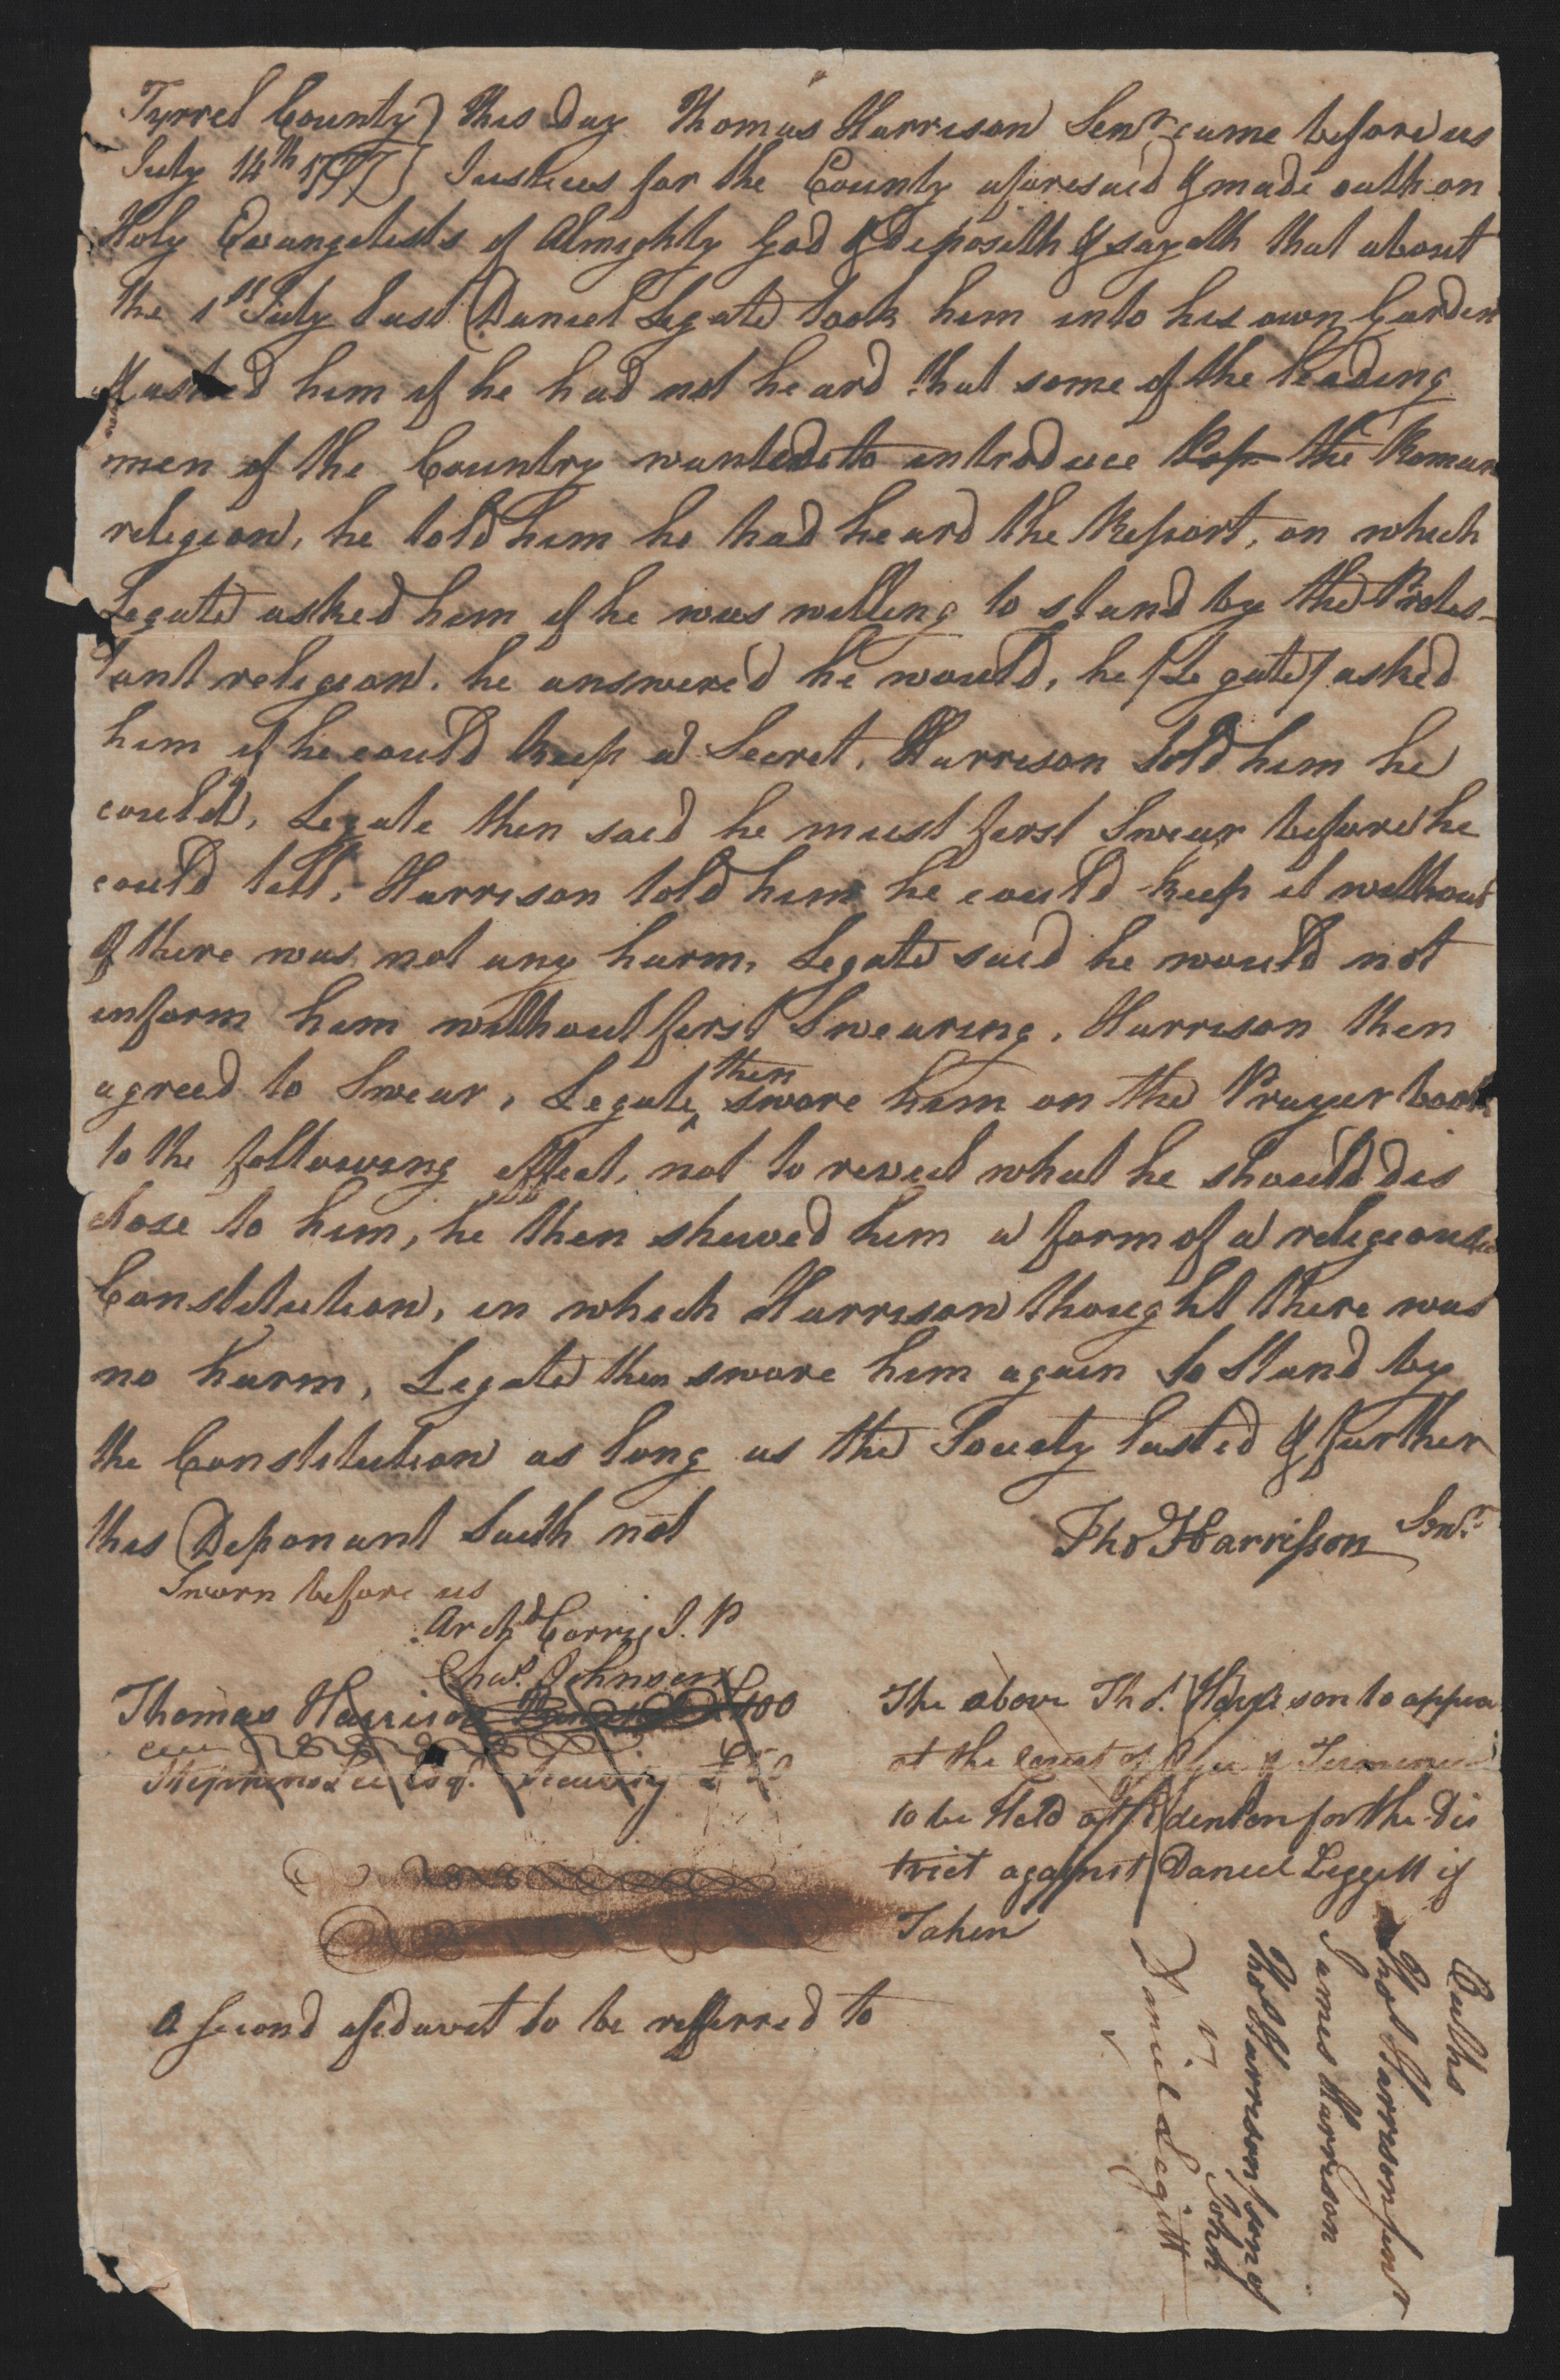 Tyrrel County) this Day Thomas Harrison Senr. came before us
July 14th 1777 } Justices for the County aforesaid & made oath on
Holy Evangelists of Almighty God & Deposeth & sayeth that about
the 1st July last Daniel Legate took him into his own Garden
& asked him if he had not heard that some of the leading
men of the Country wanted to introduce the Roman
religion, he told him he had heard the Report, on which
Legate asked him if he was willing to stand by the Protes-
tant religion. he answered he would, he /Legate/ asked
him if he could keep a Secret, Harrison told him he
could, Legate then said he must first Swear before he
could tell, Harrison told him he could keep it without
if there was not any harm, Legate said he would not
inform him without first Swearing, Harrison then
agreed to Swear, Legate then swore him on the Prayer book
to the following effect, not to reveal what he should dis
close to him, he then shewed him a form of a religeous
Constitution, in which Harrison thought there was
no harm, Legate then swore him again to Stand by
the Constitution as long as the Society lasted & further
this Deponant Saith not
Tho Harrisson Senr.
Sworn before us
Archd Corrie J. P
Chas. Johnson
Thomas Harrison £100
Stephens Lee Esqr. Security £50
The above Thos. Harrison to appea
at the Court of Oyer & Terminer
to be Held at Edenton for the Dis
trict against Daniel Leggett if
Taken
A second afidavet to be refferred to
Oaths
Thos Harrison senr
James Harrison
Thos Harrison son of
John
v.
Daniel Legitt